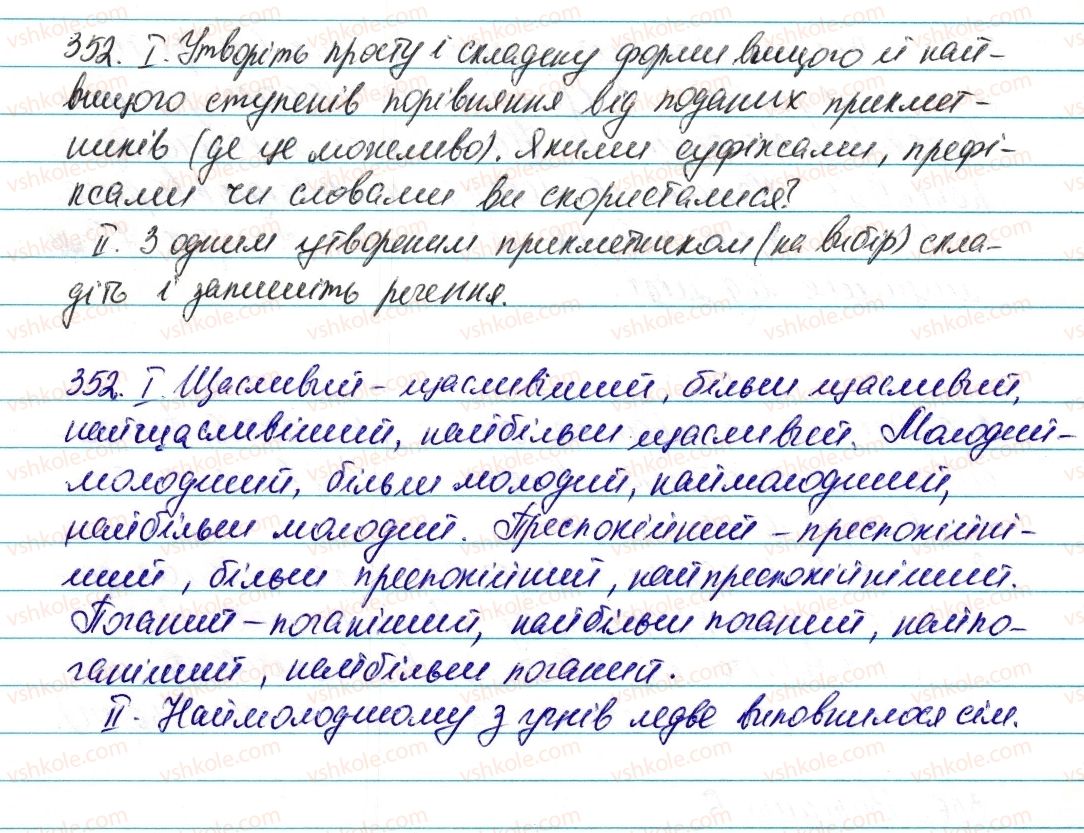 352. І. Утворіть просту і складену форми вищого й най-
вищого ступенів порівняння від поданих прикмет-
ників (де це можливо). Якими суфіксами, префі-
ксами чи словами ви скористалися?
ІІ. З одним утвореним прикметником (на вибір) скла-
діть і запишіть речення.
352. І. Щасливый - щасливіший, більш щасливый,
найщасливіший, найбільш щасливый. Молодий -
молодший, більш молодий, наймолодший,
найбільш молодий. Преспокійний - преспокійні-
ший, більш преспокійний, найпреспокійніший.
Поганий - поганіший, найбільш поганий, найпо-
ганіший, найбільш поганий.
ІІ. Наймолодшому з учнів ледве виповнилося сім.